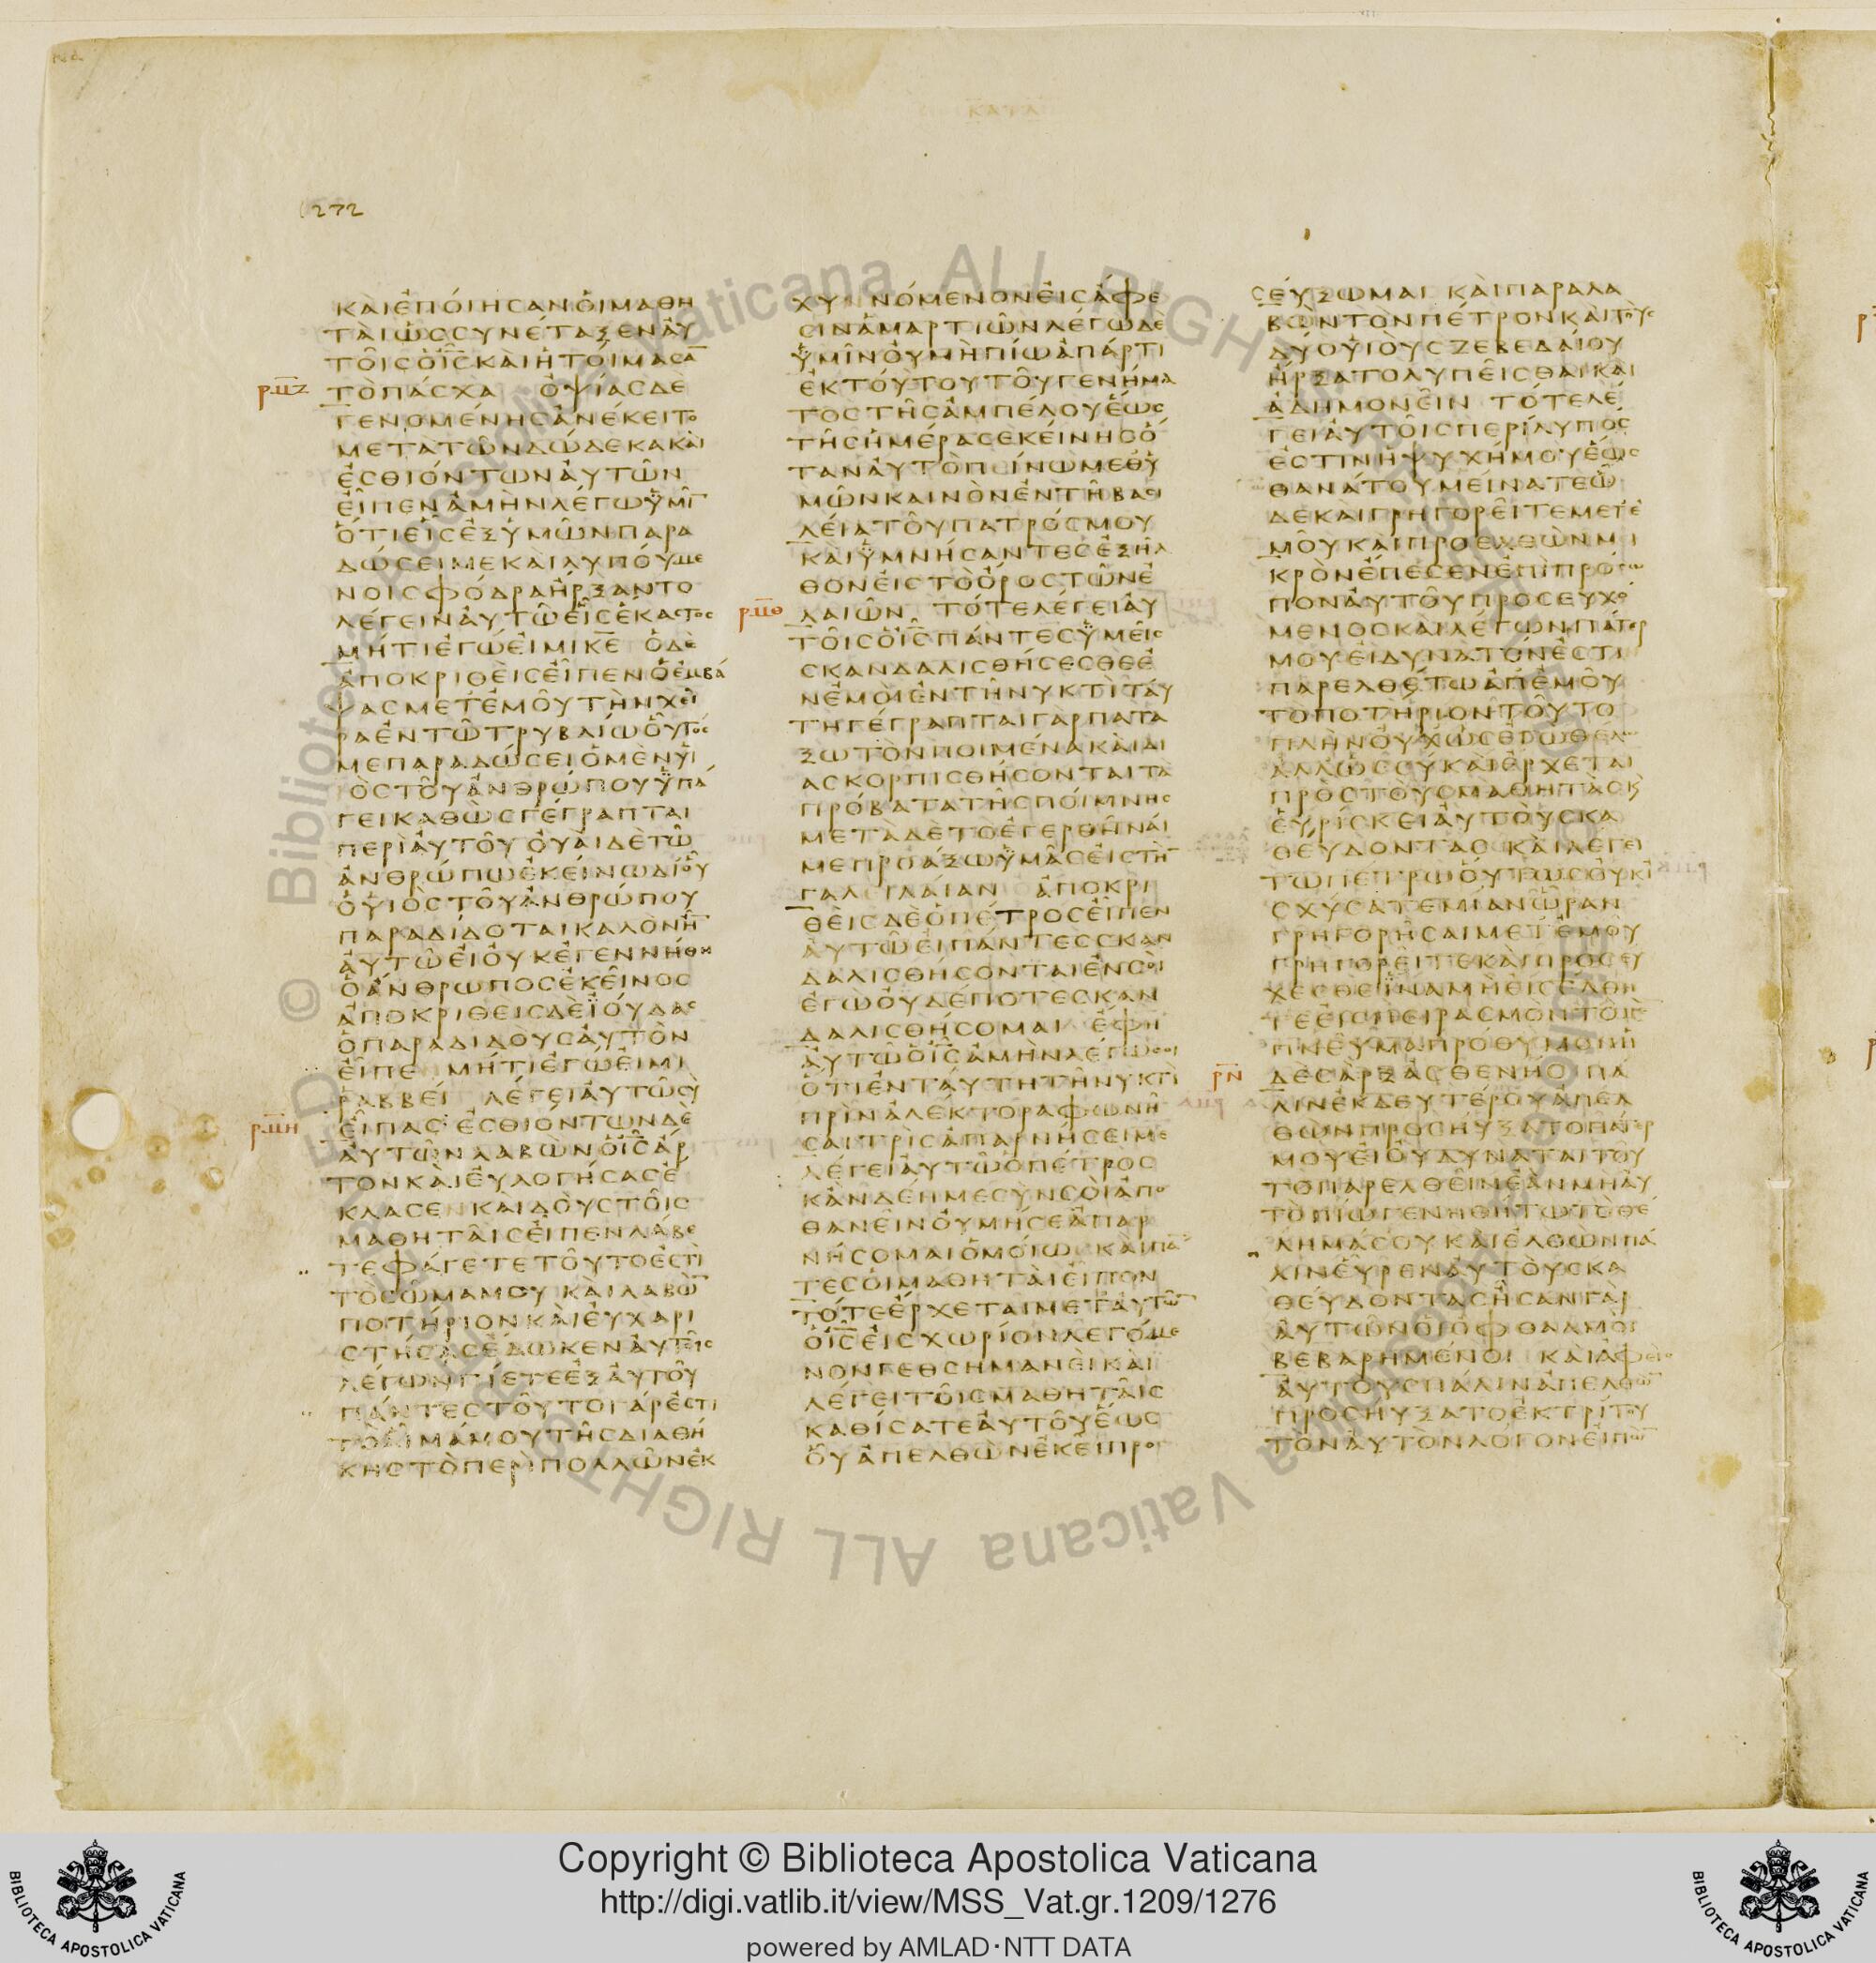 ΚΑΤΑ
1272
ΚΑΙΕΠΟΙΗΣΑΝΟΙΜΑΘΗ
ΤΑΙΩΣΣΥΝΕΤΑΞΕΝΑΥ
ΤΟΙΣΟΙΣΚΑΙΗΤΟΙΜΑΣΑ
ΡΜΖ ΤΟΠΑΣΧΑ ΟΨΙΑΣΔΕ
ΓΕΝΟΜΕΝΗΣΑΝΕΚΕΙΤΟ
ΜΕΤΑΤΩΝΔΩΔΕΚΑΚΑΙ
ΕΣΘΙΟΝΤΩΝΑΥΤΩΝ
ΕΙΠΕΝΑΜΗΝΛΕΓΩΫΜΙ
ΟΤΙΕΙΣΕΞΥΜΩΝΠΑΡΑ
ΔΩΣΕΙΜΕΚΑΙΛΥΠΟΥΜΕ
ΝΟΙΣΦΟΔΡΑΗΡΞΑΝΤΟ
ΛΕΓΕΙΝΑΥΤΩΕΙΣΕΚΑΣΤΟΣ
ΜΗΤΙΕΓΩΕΙΜΙΚΕ ΟΔΕ
ΑΠΟΚΡΙΘΕΙΣΕΙΠΕΝΟΕΜΒΑ
ΨΑΣΜΕΤΕΜΟΥΤΗΝΧΕΙ
ΡΑΕΝΤΩΤΡΥΒΛΙΩΟΥΤΟΣ
ΜΕΠΑΡΑΔΩΣΕΙΟΜΕΝΥΙ
ΟΣΤΟΥΑΝΘΡΩΠΟΥΫΠΑ
ΓΕΙΚΑΘΩΣΓΕΓΡΑΠΤΑΙ
ΠΕΡΙΑΥΤΟΥ ΟΥΑΙΔΕΤΩ
ΑΝΘΡΩΠΩΕΚΕΙΝΩΔΙΟΥ
ΟΥΙΟΣΤΟΥΑΝΘΡΩΠΟΥ
ΠΑΡΑΔΙΔΟΤΑΙΚΑΛΟΝΗ
ΑΥΤΩΕΙΟΥΚΕΓΕΝΝΗΘΗ
ΟΑΝΘΡΩΠΟΣΕΚΕΙΝΟΣ
ΑΠΟΚΡΙΘΕΙΣΔΕΪΟΥΔΑΣ
ΟΠΑΡΑΔΙΔΟΥΣΑΥΤΟΝ
ΕΙΠΕ ΜΗΤΙΕΓΩΕΙΜΙ
ΡΑΒΒΕΙ ΛΕΓΕΙΑΥΤΩΣΥ
ΡΜΗ ΕΙΠΑΣ ΕΣΘΙΟΝΤΩΝΔΕ
ΑΥΤΩΝΛΑΒΩΝΟΙΣΑΡ
ΤΟΝΚΑΙΕΥΛΟΓΗΣΑΣΕ
ΚΛΑΣΕΝΚΑΙΔΟΥΣΤΟΙΣ
ΜΑΘΗΤΑΙΣΕΙΠΕΝΛΑΒΕ
ΤΕΦΑΓΕΤΕΤΟΥΤΟΕΣΤΙ
ΤΟΣΩΜΑΜΟΥ ΚΑΙΛΑΒΩ
ΠΟΤΗΡΙΟΝΚΑΙΕΥΧΑΡΙ
ΣΤΗΣΑΣΕΔΩΚΕΝΑΥΤΟΙΣ
ΛΕΓΩΝΠΙΕΤΕΕΞΑΥΤΟΥ
ΠΑΝΤΕΣΤΟΥΤΟΓΑΡΕΣΤΙ
ΤΟΑΙΜΑΜΟΥΤΗΣΔΙΑΘΗ
ΚΗΣΤΟΠΕΡΙΠΟΛΛΩΝΕΚ
ΧΥΝΝΟΜΕΝΟΝΕΙΣΑΦΕ
ΣΙΝΑΜΑΡΤΙΩΝΛΕΓΩΔΕ
ΫΜΙΝΟΥΜΗΠΙΩΑΠΑΡΤΙ
ΕΚΤΟΥΤΟΥΤΟΥΓΕΝΗΜΑ
ΤΟΣΤΗΣΑΜΠΕΛΟΥΕΩΣ
ΤΗΣΗΜΕΡΑΣΕΚΕΙΝΗΣΟ
ΤΑΝΑΥΤΟΠΙΝΩΜΕΘΥ
ΜΩΝΚΑΙΝΟΝΕΝΤΗΒΑΣΙ
ΛΕΙΑΤΟΥΠΑΤΡΟΣΜΟΥ
ΚΑΙΫΜΝΗΣΑΝΤΕΣΕΞΗΛ
ΘΟΝΕΙΣΤΟΟΡΟΣΤΩΝΕ
ΡΜΘ ΛΑΙΩΝ ΤΟΤΕΛΕΓΕΙΑΥ
ΤΟΙΣΟΙΣΠΑΝΤΕΣΫΜΕΙΣ
ΣΚΑΝΔΑΛΙΣΘΗΣΕΣΘΕΕ
ΝΕΜΟΙΕΝΤΗΝΥΚΤΙΤΑΥ
ΤΗΓΕΓΡΑΠΤΑΙΓΑΡΠΑΤΑ
ΞΩΤΟΝΠΟΙΜΕΝΑΚΑΙΔΙ
ΑΣΚΟΡΠΙΣΘΗΣΟΝΤΑΙΤΑ
ΠΡΟΒΑΤΑΤΗΣΠΟΙΜΝΗΣ
ΜΕΤΑΔΕΤΟΕΓΕΡΘΗΝΑΙ
ΜΕΠΡΟΑΞΩΫΜΑΣΕΙΣΤΗ
ΓΑΛΕΙΛΑΙΑΝ ΑΠΟΚΡΙ
ΘΕΙΣΔΕΟΠΕΤΡΟΣΕΙΠΕΝ
ΑΥΤΩΕΙΠΑΝΤΕΣΣΚΑΝ
ΔΑΛΙΣΘΗΣΟΝΤΑΙΕΝΣΟΙ
ΕΓΩΟΥΔΕΠΟΤΕΣΚΑΝ
ΔΑΛΙΣΘΗΣΟΜΑΙ ΕΦΗ
ΑΥΤΩΟΙΣΑΜΗΝΛΕΓΩΣΟΙ
ΟΤΙΕΝΤΑΥΤΗΤΗΝΥΚΤΙ
ΠΡΙΝΑΛΕΚΤΟΡΑΦΩΝΗ
ΣΑΙΤΡΙΣΑΠΑΡΝΗΣΕΙΜΕ
ΛΕΓΕΙΑΥΤΩΟΠΕΤΡΟΣ
ΚΑΝΔΕΗΜΕΣΥΝΣΟΙΑΠΟ
ΘΑΝΕΙΝΟΥΜΗΣΕΑΠΑΡ
ΝΗΣΟΜΑΙΟΜΟΙΩΣ ΚΑΙΠΑ
ΤΕΣΟΙΜΑΘΗΤΑΙΕΙΠΟΝ
ΤΟΤΕΕΡΧΕΤΑΙΜΕΤΑΥΤΩ
ΟΙΣΕΙΣΧΩΡΙΟΝΛΕΓΟΜΕ
ΝΟΝΓΕΘΣΗΜΑΝΕΙΚΑΙ
ΛΕΓΕΙΤΟΙΣΜΑΘΗΤΑΙΣ
ΚΑΘΙΣΑΤΕΑΥΤΟΥΕΩΣ
ΟΥΑΠΕΛΘΩΝΕΚΕΙΠΡΟ
ΣΕΥΞΩΜΑΙ ΚΑΙΠΑΡΑΛΑ
ΒΩΝΤΟΝΠΕΤΡΟΝΚΑΙΤΟΥΣ
ΔΥΟΥΙΟΥΣΖΕΒΕΔΑΙΟΥ
ΗΡΞΑΤΟΛΥΠΕΙΣΘΑΙΚΑΙ
ΑΔΗΜΟΝΕΙΝ ΤΟΤΕΛΕ
ΓΕΙΑΥΤΟΙΣΠΕΡΙΛΥΠΟΣ
ΕΣΤΙΝΗΨΥΧΗΜΟΥΕΩΣ
ΘΑΝΑΤΟΥΜΕΙΝΑΤΕΩ
ΔΕΚΑΙΓΡΗΓΟΡΕΙΤΕΜΕΤΕ
ΜΟΥΚΑΙΠΡΟΕΛΘΩΝΜΙ
ΚΡΟΝΕΠΕΣΕΝΕΠΙΠΡΟΣΩ
ΠΟΝΑΥΤΟΥΠΡΟΣΕΥΧΟ
ΜΕΝΟΣΚΑΙΛΕΓΩΝΠΑΤΕΡ
ΜΟΥΕΙΔΥΝΑΤΟΝΕΣΤΙ
ΠΑΡΕΛΘΕΤΩΑΠΕΜΟΥ
ΤΟΠΟΤΗΡΙΟΝΤΟΥΤΟ
ΠΛΗΝΟΥΧΩΣΕΓΩΘΕΛΩ
ΑΛΛΩΣΣΥΚΑΙΕΡΧΕΤΑΙ
ΠΡΟΣΤΟΥΣΜΑΘΗΤΑΣΚ
ΕΥΡΙΣΚΕΙΑΥΤΟΥΣΚΑ
ΘΕΥΔΟΝΤΑΣ ΚΑΙΛΕΓΕΙ
ΤΩΠΕΤΡΩΟΥΤΩΣΟΥΚΙ
ΣΧΥΣΑΤΕΜΙΑΝΩΡΑΝ
ΓΡΗΓΟΡΗΣΑΙΜΕΤΕΜΟΥ
ΓΡΗΓΟΡΕΙΤΕΚΑΙΠΡΟΣΕΥ
ΧΕΣΘΕΪΝΑΜΗΕΙΣΕΛΘΗ
ΤΕΕΙΣΠΕΙΡΑΣΜΟΝΤΟΜΕ
ΠΝΕΥΜΑΠΡΟΘΥΜΟΝΗ
ΡΝ ΔΕΣΑΡΞΑΣΘΕΝΗΣΠΑ
ΛΙΝΕΚΔΕΥΤΕΡΟΥΑΠΕΛ
ΘΩΝΠΡΟΣΗΥΞΑΤΟΠΑΤΕΡ
ΜΟΥΕΙΟΥΔΥΝΑΤΑΙΤΟΥ
ΤΟΠΑΡΕΛΘΕΙΝΕΑΝΜΗΑΥ
ΤΟΠΙΩΓΕΝΗΘΗΤΩΤΟΘΕ
ΛΗΜΑΣΟΥΚΑΙΕΛΘΩΝΠΑ
ΛΙΝΕΥΡΕΝΑΥΤΟΥΣΚΑ
ΘΕΥΔΟΝΤΑΣΗΣΑΝΓΑΡ
ΑΥΤΩΝΟΙΟΦΘΑΛΜΟΙ
ΒΕΒΑΡΗΜΕΝΟΙ ΚΑΙΑΦΕΙΣ
ΑΥΤΟΥΣΠΑΛΙΝΑΠΕΛΘΩ
ΠΡΟΣΗΥΞΑΤΟΕΚΤΡΙΤΟΥ
ΤΟΝΑΥΤΟΝΛΟΓΟΝΕΙΠΩ
Copyright © Biblioteca Apostolica Vaticana
http://digi.vatlib.it/view/MSS_Vat.gr.1209/1276
powered by AMLAD·NTT DATA
BIBLIOTECA APOSTOLICA VATICANA
BIBLIOTECA APOSTOLICA VATICANA